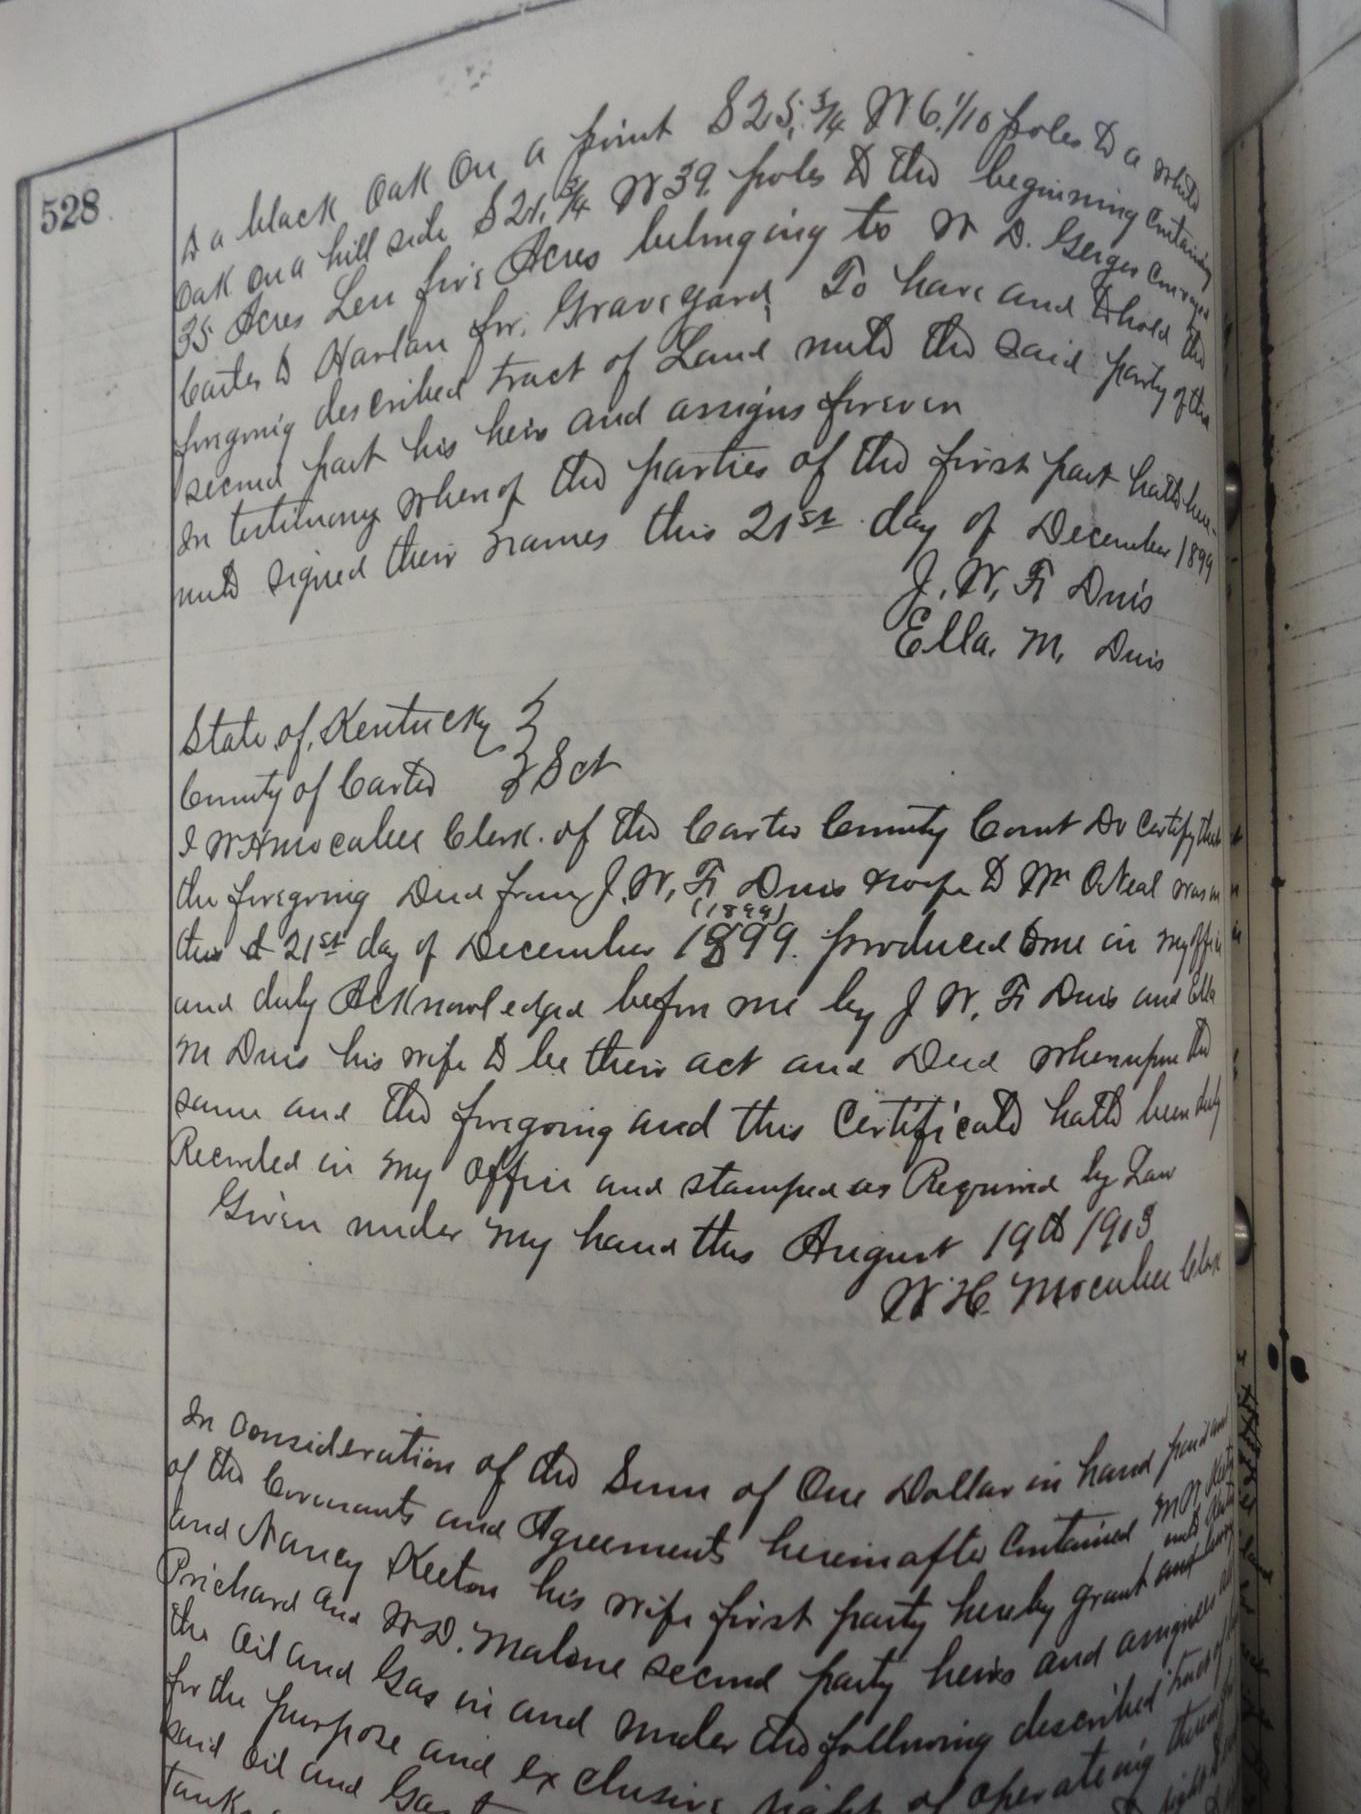 528
to a black Oak On a point S 25, 3/4 W 6.1/10 poles to a white
Oak on a hill side S 21, 3/4 W 39 poles to the beginning Containing
35 Acres Less five Acres belonging to W D. Conveyed
to Harlan for Grave yard, To have and to hold the
foregoing described tract of Land unto the said party of the
second part his heirs and assigns forever
In testimony whereof the parties of the first part hath here-
unto signed their names this 21st day of December 1899
J. W. F Duis
Ella. M. Duis
State of Kentucky }
County of Carter } Sct
I W H Mocabee Clerk. of the Carter County Court Do Certify that
the foregoing Deed from J. W. F Duis & wife to Wm O Neal was on
(1899)
this 21st day of December 1899. produced to me in my office
and duly Acknowledged before me by J W. F Duis and Ella
M Duis his wife to be their act and Deed whereupon the
same and the foregoing and this Certificate hath been duly
Recorded in my Office and stamped as Required by Law
Given under my hand this August 19th 1903
W H Mocabee Clerk
In Consideration of the Sum of One Dollar in hand paid and
of the Covenants and Agreements hereinafter Contained M N Keeton
and Nancy Keeton his wife first party hereby grant and unto
Prichard and W D. Malone second party heirs and assignees all
the Oil and Gas in and under the following described tract of
for the purpose and exclusive right of operating
said Oil and Gas
Tanks